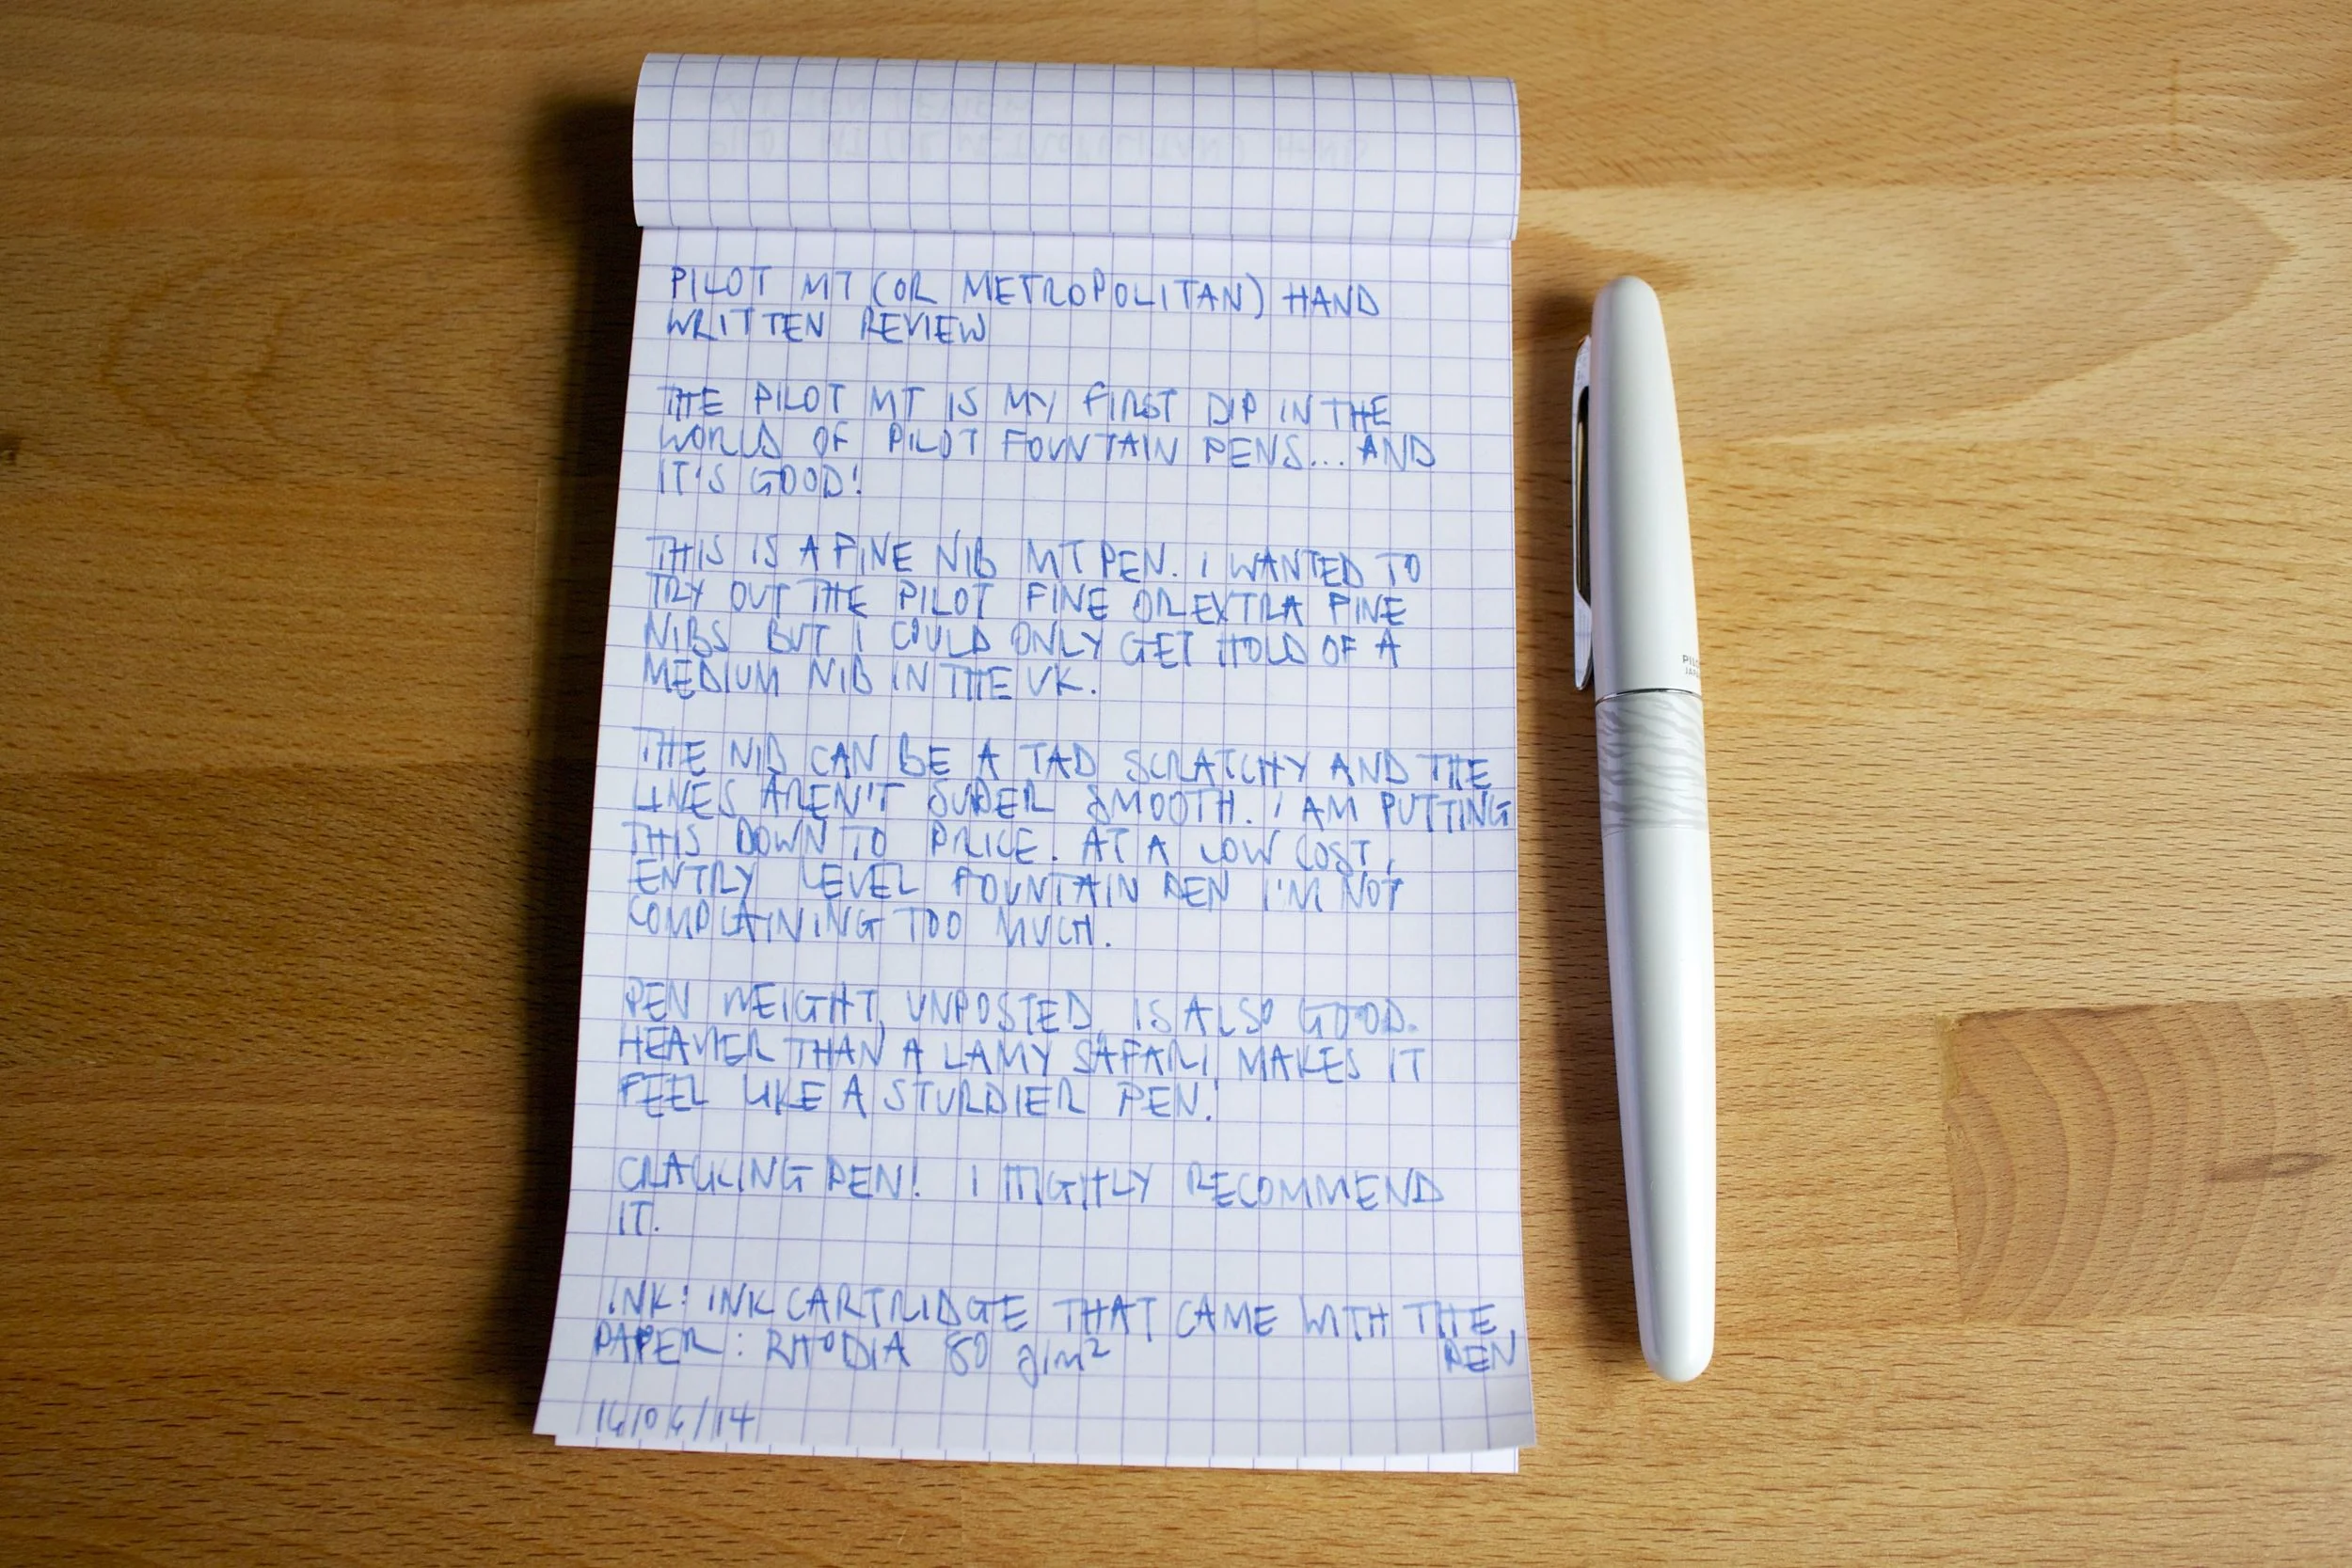 PILOT MT (OR METROPOLITAN) HAND
WRITTEN REVIEW
THE PILOT MT IS MY FIRST DIP IN THE
WORLD OF PILOT FOUNTAIN PENS... AND
IT'S GOOD!
THIS IS A FINE NIB MT PEN. I WANTED TO
TRY OUT THE PILOT FINE OR EXTRA FINE
NIBS BUT I COULD ONLY GET HOLD OF A
MEDIUM NIB IN THE UK.
THE NIB CAN BE A TAD SCRATCHY AND THE
LINES AREN'T SUPER SMOOTH. I AM PUTTING
THIS DOWN TO PRICE. AT A LOW COST,
ENTRY LEVEL FOUNTAIN PEN I'M NOT
COMPLAINING TOO MUCH.
PEN WEIGHT, UNPOSTED, IS ALSO GOOD.
HEAVIER THAN A LAMY SAFARI, MAKES IT
FEEL LIKE A STURDIER PEN.
CRACKING PEN! I HIGHLY RECOMMEND
IT.
INK: INK CARTRIDGE THAT CAME WITH THE
PEN
PAPER: RHODIA 80 g/m²